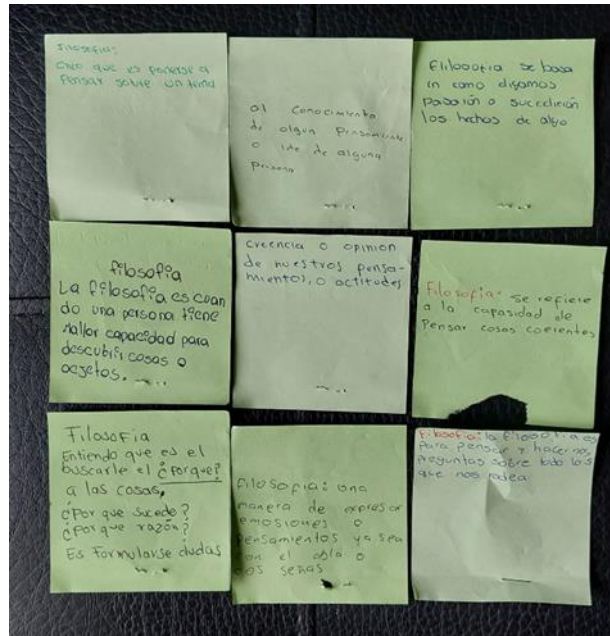 Filosofia:
Creo que es ponerse a
Pensar sobre un tema
al Conocimiento
de algun Pensamiento
o ide de alguna
Persona
Filosofia se basa
en como digamos
pasarón o sucedierón
los hechos de algo
filosofía
La filosofía es cuan
do una persona tiene
mallor capacidad para
descubrir cosas o
ocjetos.
creencia o opinion
de nuestros pensa-
mientos, o actitudes
Filosofia: se refiere
a la capasidad de
Pensar cosas coerentes
Filosofia
Entiendo que es el
buscarle el ¿Porque?
a las cosas,
¿Por que sucede?
¿Por que razón?
Es Formularse dudas
Filosofia: una
manera de expresar
emosiones o
pensamientos ya sea
con el abla o
dos señas
Filosofia: la filosofia es
Para pensar y hacernos
preguntas sobre todo los
que nos rodea